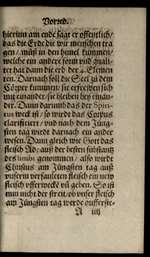 Vorred.
hierinn am ende sagt er offentlich/
das die Erd/ die wir menschen tra
gen / muß in den himel kummen/
welche ein ander form vnd quali-
tet hat dann die erd der 4. Elemen
ten. Darnach soll die Seel zu dem
Cörper kummen/ sie erfrewen sich
mit einander/ sie bleiben bey einan
der. Dann darumb das der Spiri-
tus weck ist / so wurdt das Corpus
clarificiert / vnd nach dem Jüng-
sten tag wirdt darnach ein ander
wesen. Dann gleich wie Gott das
fleisch Ad: auß der besten substantz
des limbi genommen / also wirdt
Christus am Jüngsten tag auß
vnserm verfaulten fleisch ein new
fleisch vfferweckt vñ geben. So ist
nun nicht der streit/ ob vnser fleisch
am Jüngsten tag werde aufferste-
A iiij